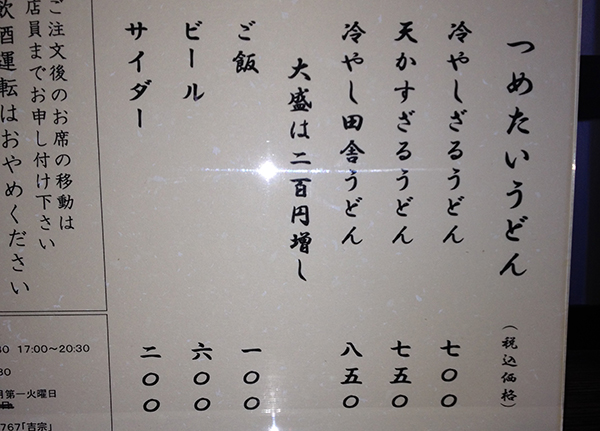 つめたいうどん
（税込価格）
冷やしざるうどん 七〇〇
天かすざるうどん 七五〇
冷やし田舎うどん 八五〇
大盛は二百円増し
ご飯 一〇〇
ビール 六〇〇
サイダー 二〇〇
ご注文後のお席の移動は
店員までお申し付け下さい
飲酒運転はおやめください
30 17:00～20:30
30
月第一火曜日
767「吉宗」